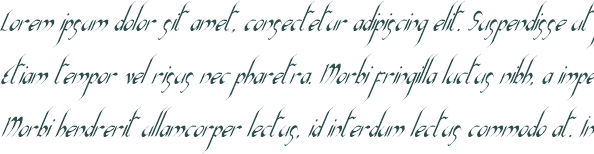 Lorem ipsum dolor sit amet, consectetur adipiscing elit. Suspendisse ut
Etiam tempor vel risus nec pharetra. Morbi fringilla luctus nibh, a impe
Morbi hendrerit ullamcorper lectus, id interdum lectus commodo at. In